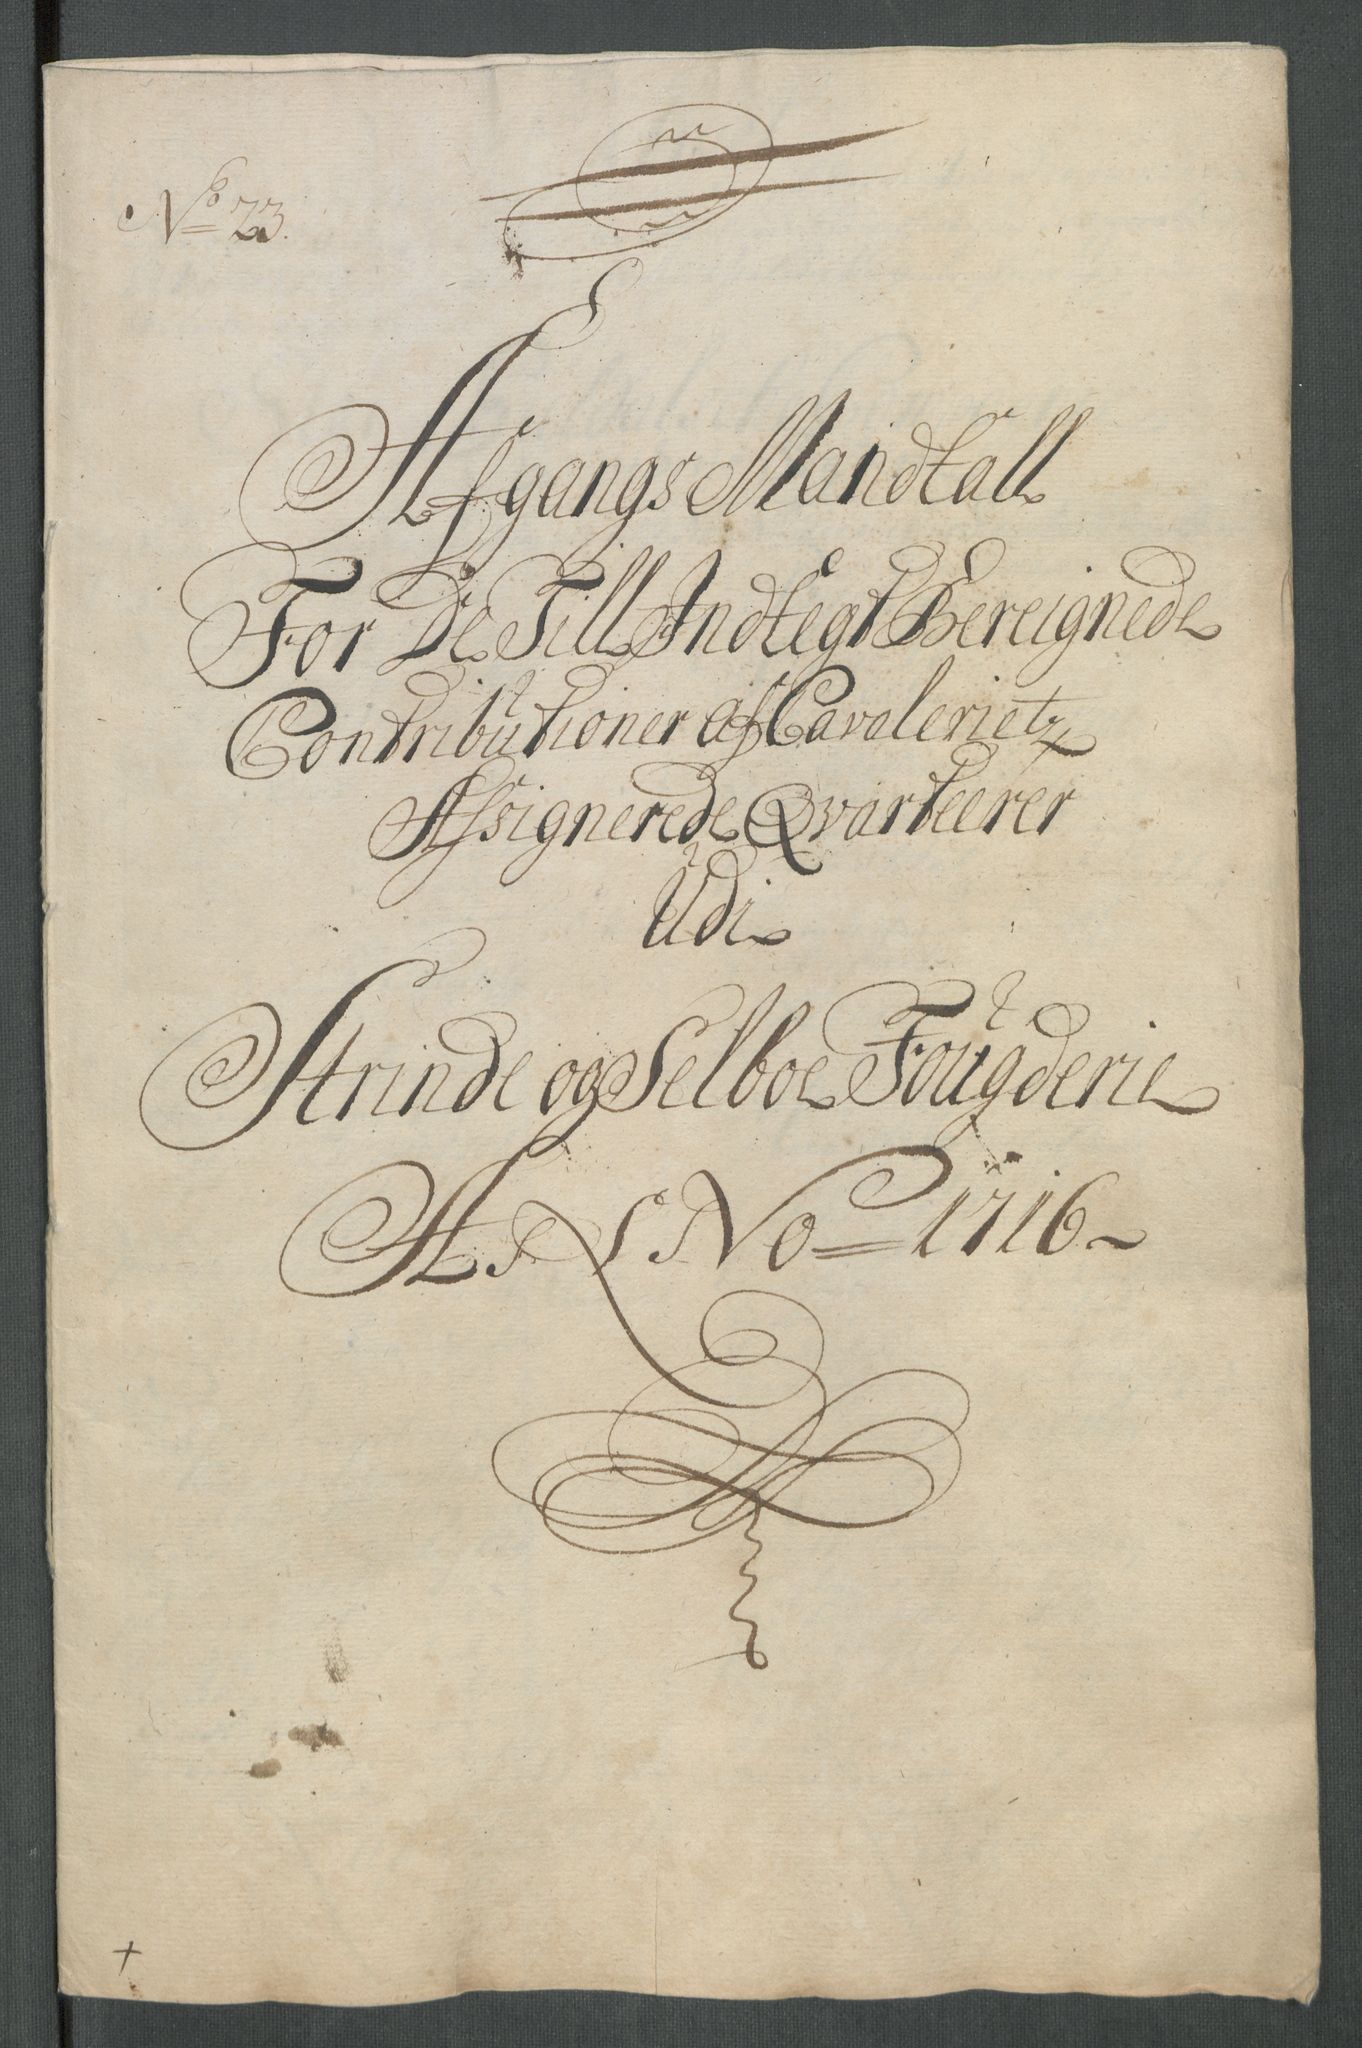 No 23.
Afgangs Mandtall
For De Till Indtegt Bereignede
Contributioner af Cavaleriets
Assignerede Qvarteerer
Udi
Strinde og Selboe Fougderie
A No 1716